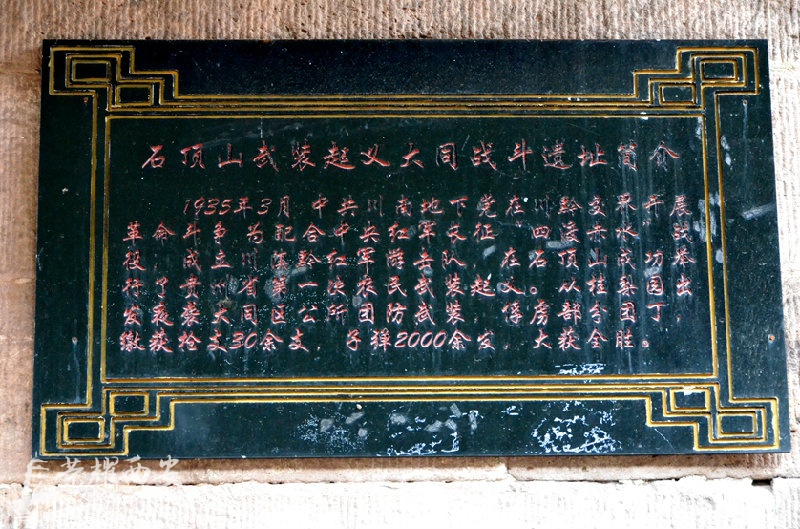 石顶山武装起义大同战斗遗址简介
1935年3月中共川南地下党在川黔交界开展
革命斗争为配合中央红军长征四渡赤水战
役成立川滇黔红军游击队在石顶山成功举
行了贵州省第一次农民武装起义。从桂花园出
发夜袭大同区公所团防武装俘虏部分团丁
缴获枪支30余支,子弹2000余发,大获全胜。